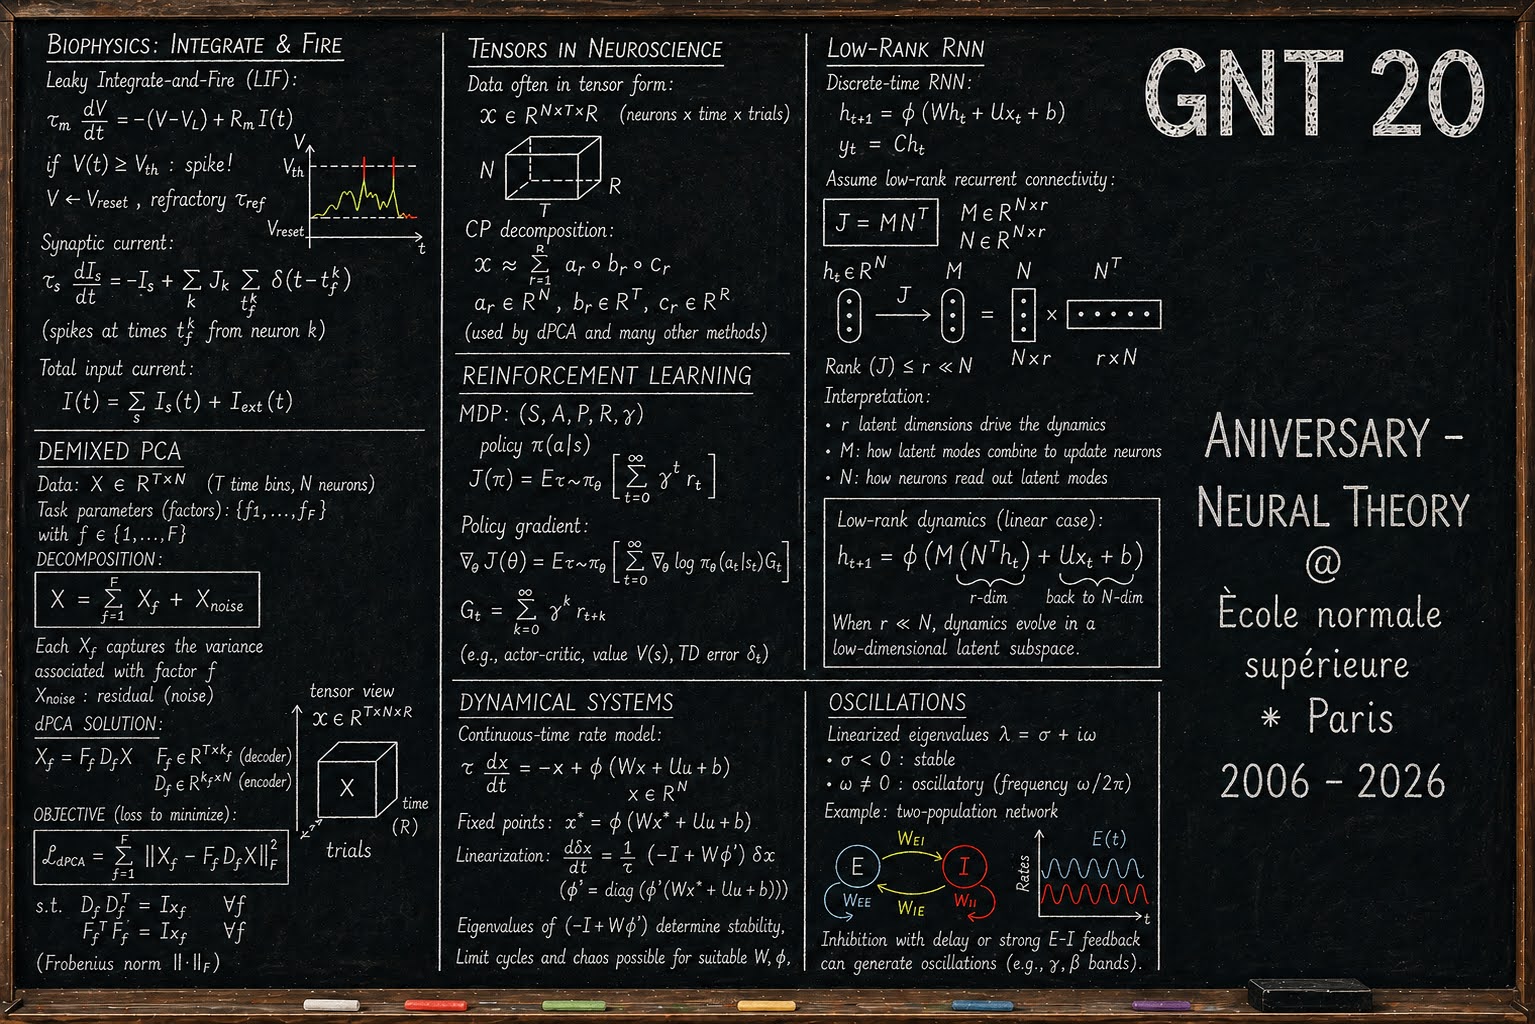 BIOPHYSICS: INTEGRATE & FIRE
Leaky Integrate-and-Fire (LIF):
τm dV/dt = -(V-VL) + Rm I(t)
if V(t) ≥ Vth : spike!
V ← Vreset , refractory τref
V
Vth
Vreset
t
Synaptic current:
τs dIs/dt = -Is + Σk Jk Σt_f^k δ(t-t_f^k)
(spikes at times t_f^k from neuron k)
Total input current:
I(t) = Σs Is(t) + Iext(t)
DEMIXED PCA
Data: X ∈ R^T×N (T time bins, N neurons)
Task parameters (factors): {f1,...,fF}
with f ∈ {1,...,F}
DECOMPOSITION:
X = Σ_{f=1}^{F} Xf + Xnoise
Each Xf captures the variance
associated with factor f
Xnoise : residual (noise)
dPCA SOLUTION:
Xf = Ff Df X Ff ∈ R^T×kf (decoder)
Df ∈ R^kf×N (encoder)
tensor view
x ∈ R^T×N×R
X
time
(R)
trials
OBJECTIVE (loss to minimize):
ℒdPCA = Σ_{f=1}^{F} ||Xf - Ff Df X||²_F
s.t. Df Df^T = Ixf ∀f
Ff^T Ff = Ixf ∀f
(Frobenius norm ||·||F)
TENSORS IN NEUROSCIENCE
Data often in tensor form:
x ∈ R^N×T×R (neurons x time x trials)
N
R
T
CP decomposition:
x ≈ Σ_{r=1}^{R} ar ∘ br ∘ cr
ar ∈ R^N, br ∈ R^T, cr ∈ R^R
(used by dPCA and many other methods)
REINFORCEMENT LEARNING
MDP: (S, A, P, R, γ)
policy π(a|s)
J(π) = Eτ~πθ [Σ_{t=0}^{∞} γ^t rt]
Policy gradient:
∇θ J(θ) = Eτ~πθ [Σ_{t=0}^{∞} ∇θ log πθ(at|st)Gt]
Gt = Σ_{k=0}^{∞} γ^k rt+k
(e.g., actor-critic, value V(s), TD error δt)
DYNAMICAL SYSTEMS
Continuous-time rate model:
τ dx/dt = -x + ϕ (Wx + Uu + b)
x ∈ R^N
Fixed points: x* = ϕ (Wx* + Uu + b)
Linearization: dδx/dt = 1/τ (-I + Wϕ') δx
(ϕ' = diag (ϕ'(Wx* + Uu + b)))
Eigenvalues of (-I + Wϕ') determine stability,
Limit cycles and chaos possible for suitable W, ϕ,
LOW-RANK RNN
Discrete-time RNN:
ht+1 = ϕ (Wht + Uxt + b)
yt = Cht
Assume low-rank recurrent connectivity:
J = MN^T M ∈ R^N×r
N ∈ R^N×r
ht ∈ R^N M N N^T
J = ×
N×r r×N
Rank (J) ≤ r ≪ N
Interpretation:
• r latent dimensions drive the dynamics
• M: how latent modes combine to update neurons
• N: how neurons read out latent modes
Low-rank dynamics (linear case):
ht+1 = ϕ (M (N^T ht) + Uxt + b)
r-dim back to N-dim
When r ≪ N, dynamics evolve in a
low-dimensional latent subspace.
OSCILLATIONS
Linearized eigenvalues λ = σ + iω
• σ < 0 : stable
• ω ≠ 0 : oscillatory (frequency ω/2π)
Example: two-population network
WEI
E I
WEE WII
WIE
Rates
E(t)
t
Inhibition with delay or strong E-I feedback
can generate oscillations (e.g., γ, β bands).
GNT 20
ANIVERSARY -
NEURAL THEORY
@
Ècole normale
supérieure
* Paris
2006 - 2026